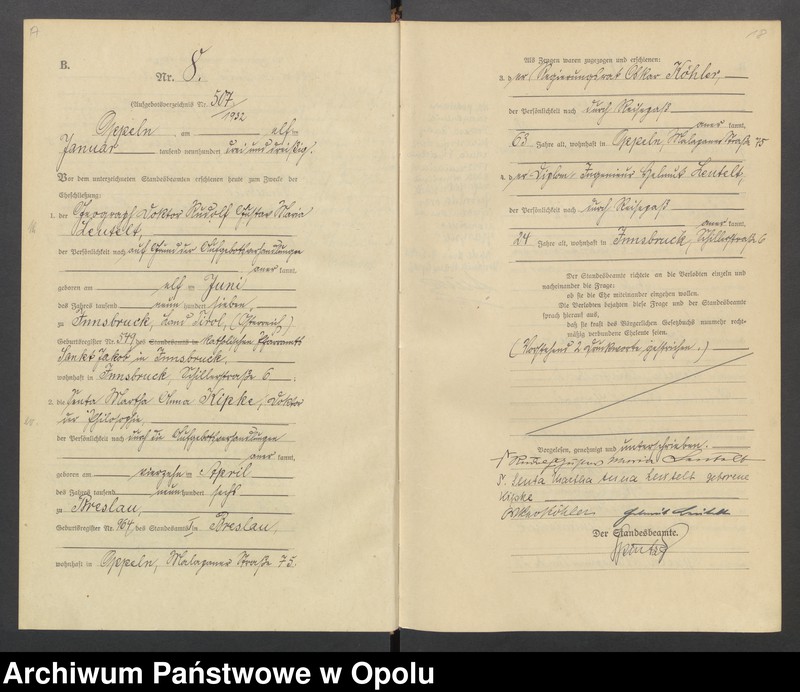 A
B.
Nr. 8.
(Aufgebotsverzeichnis Nr. 507/1932
Oppeln, am elften
Januar tausend neunhundert drei und dreißig.
Vor dem unterzeichneten Standesbeamten erschienen heute zum Zwecke der
Eheschließung:
1. der Geograph Doktor Rudolf Gustav Maria
Leutelt,
der Persönlichkeit nach auf Grund der Aufgebotsverhandlungen
aner kannt,
geboren am elften Juni
des Jahres tausend neun hundert sieben,
zu Innsbruck, Land Tirol, (Österreich)
Geburtsregister Nr. 549 des Standesamts in Katholischen Pfarramts
Sankt Jakob in Innsbruck,
wohnhaft in Innsbruck, Schillerstraße 6 ;
2. die Senta Martha Anna Kipke, Doktor
der Philosophie,
der Persönlichkeit nach durch die Aufgebotsverhandlungen
aner kannt,
geboren am vierzehnten April
des Jahres tausend neunhundert sechs
zu Breslau,
Geburtsregister Nr. 964, des Standesamts I in Breslau,
wohnhaft in Oppeln, Malapaner Straße 75.
18
Als Zeugen waren zugezogen und erschienen:
3. der Regierungsrat Oskar Köhler,
der Persönlichkeit nach durch Reisepaß
aner kannt,
63 Jahre alt, wohnhaft in Oppeln, Malapaner Straße 75
4. der Diplom-Ingenieur Helmut Leutelt,
der Persönlichkeit nach durch Reisepaß
aner kannt,
24 Jahre alt, wohnhaft in Innsbruck, Schillerstraße 6
Der Standesbeamte richtete an die Verlobten einzeln und
nacheinander die Frage:
ob sie die Ehe miteinander eingehen wollen.
Die Verlobten bejahten diese Frage und der Standesbeamte
sprach hierauf aus,
daß sie kraft des Bürgerlichen Gesetzbuchs nunmehr recht-
mäßig verbundene Eheleute seien.
(Vorstehend 2 Druckworte gestrichen.)
Vorgelesen, genehmigt und unterschrieben.
Rudolf Gustav Maria Leutelt
Senta Martha Anna Leutelt geborene
Kipke
Oskar Köhler Helmut Leutelt
Der Standesbeamte.
Archiwum Państwowe w Opolu